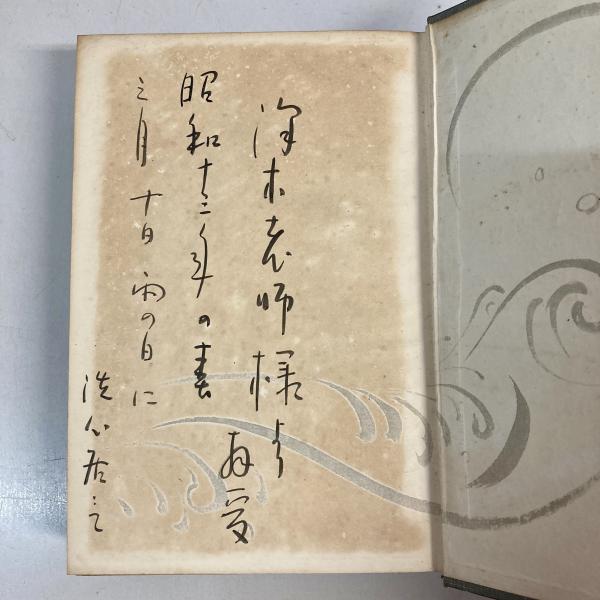 深木老師様より
拝受
昭和十三年の春
三月十日雨の日に
洗心居にて